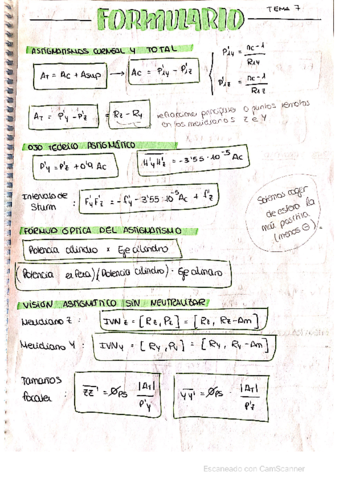 FORMULARIO
TEMA 7
ASTIGMATISMOS CORNEAL Y TOTAL
AT = AC + Asup → AC = P'1Y - P'1Z
P'1Y = nc-1 / R1Y
P'1Z = nc-1 / R1Z
AT = P'Y - P'Z = RZ - RY
refracciones principales o puntos remotos
en los meridianos Z e Y
OJO TEÓRICO ASTIGMÁTICO
P'Y = P'Z + 0'9 AC
H'YH'Z = -3'55·10^-5 AC
Intervalo de
Sturm :
F'YF'Z = -f'Y - 3'55·10^-5 AC + f'Z
Solemos coger
de esfera la
más positiva
(menos ⊖)
FÓRMULA ÓPTICA DEL ASTIGMATISMO
Potencia cilindro × Eje cilindro
(Potencia esfera) (Potencia cilindro) · Eje cilindro
VISIÓN ASTIGMÁTICO SIN NEUTRALIZAR
Meridiano Z :
IVNZ = [RZ, PZ] = [RZ, RZ-Am]
Meridiano Y :
IVNY = [RY, PY] = [RY, RY-Am]
Tamaños
focales :
ZZ' = ØPS |AT| / P'Y
YY' = ØPS · |AT| / P'Z
Escaneado con CamScanner